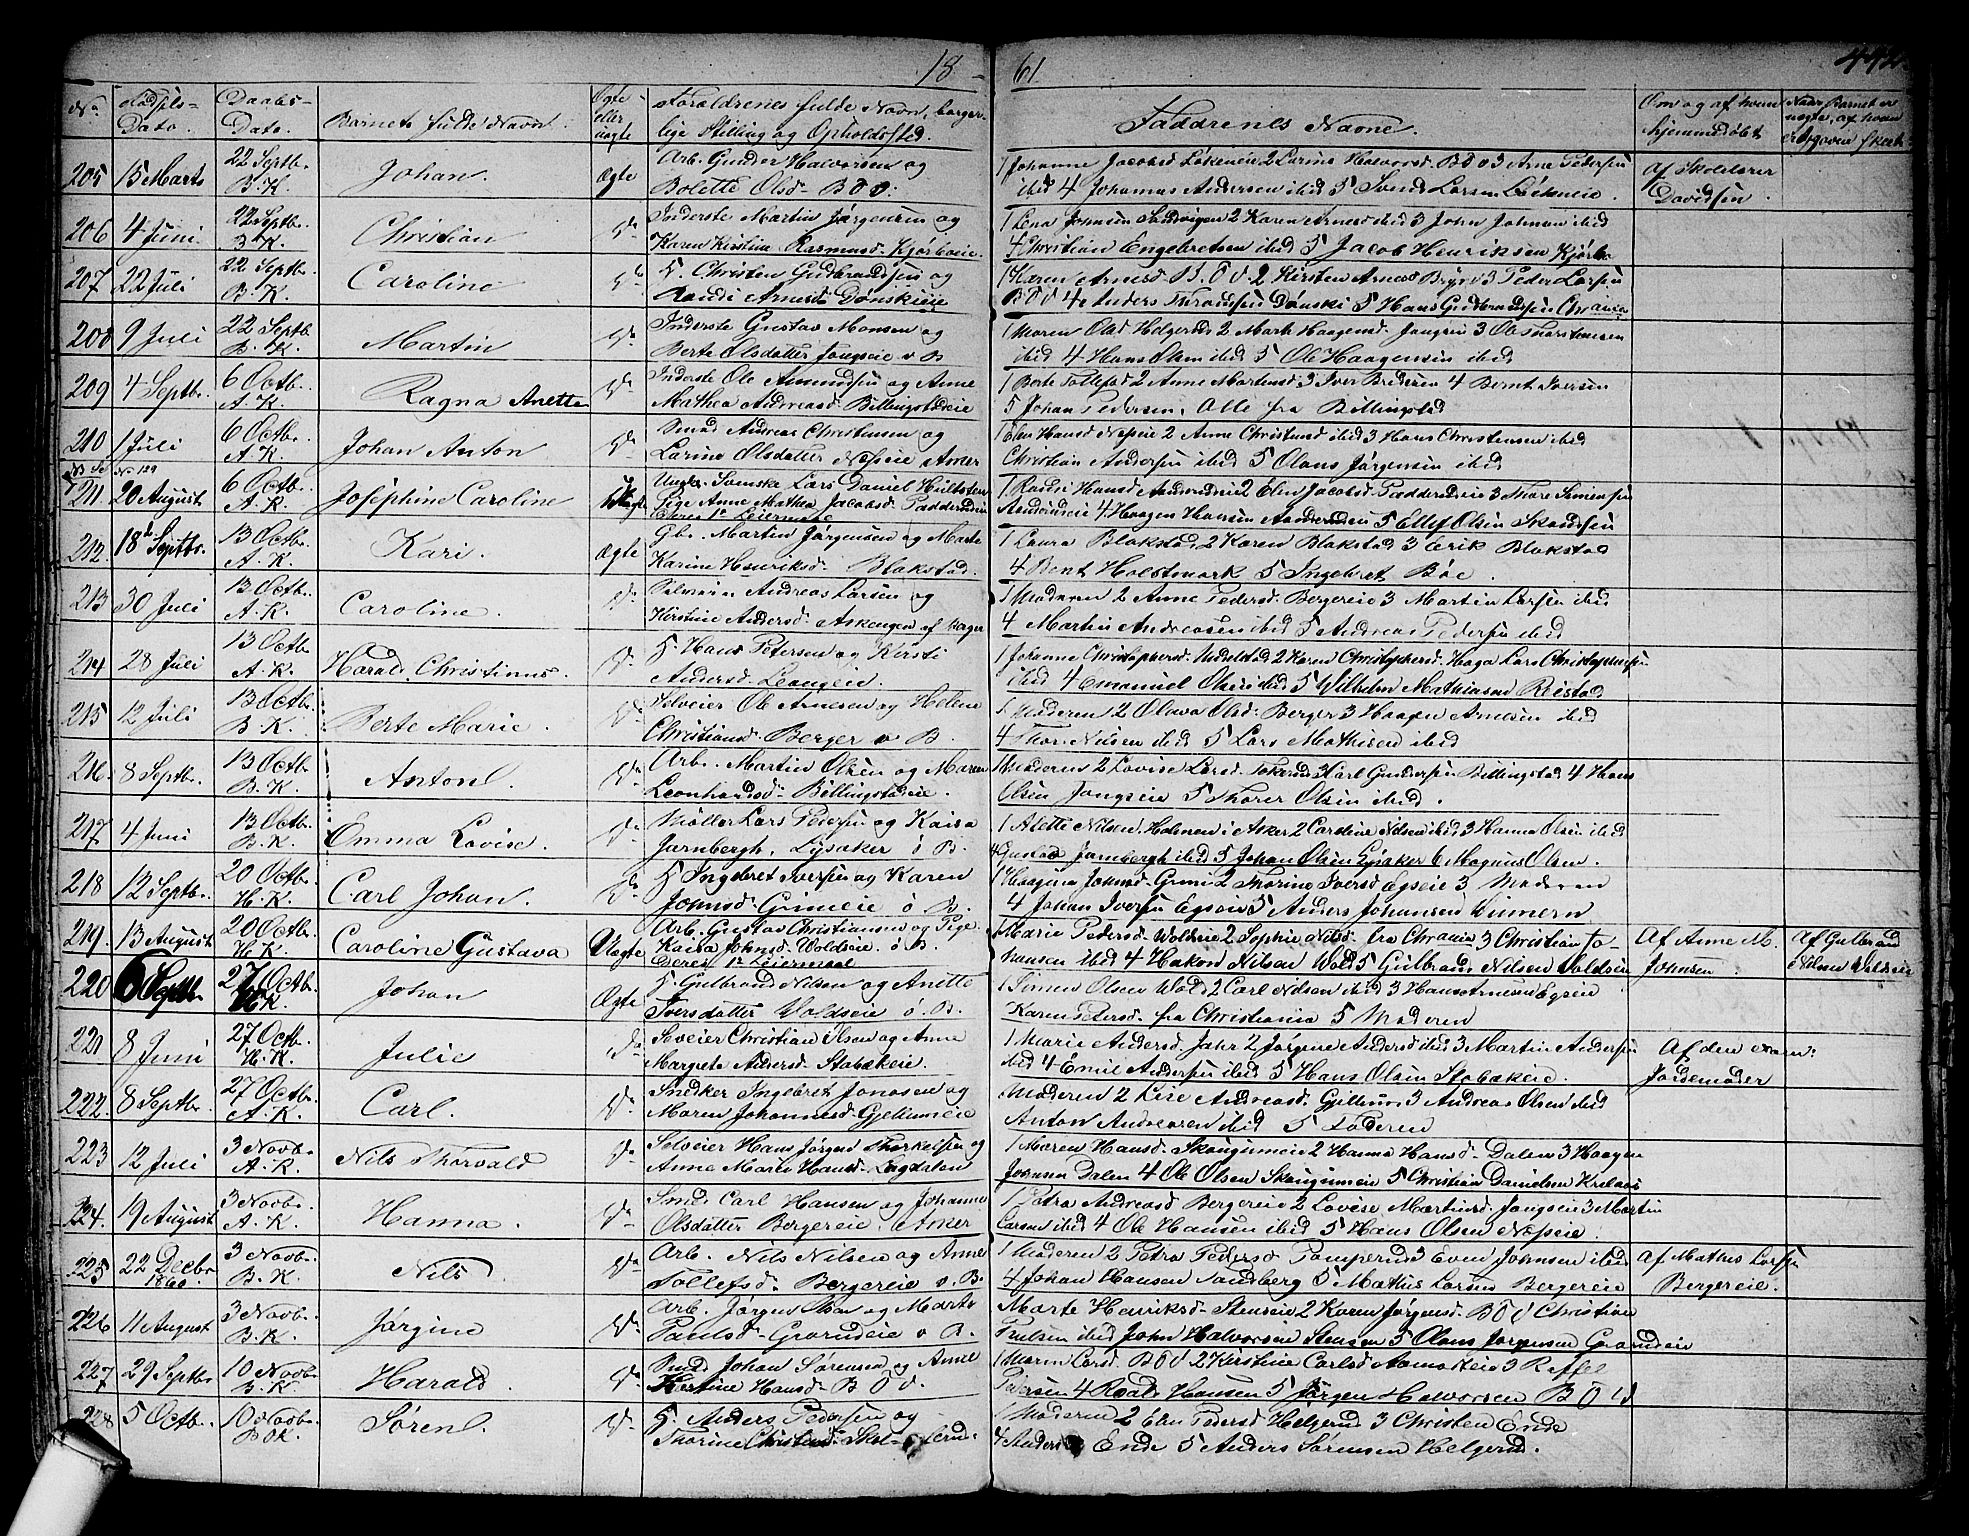 18 - 61
442
No
Fødsels-
Dato.
Daabs-
Dato.
Barnets fulde Navn.
Ægte
eller
uægte
Forældrenes fulde Navn, borger-
lige Stilling og Opholdssted.
Faddrenes Navne.
Om og af hvem
hjemmedøbt
Naar Barnet er
uægte, af hvem
er Opgaven skeet.
205 15 Marts 22 Septb. B. K. Johan. Ægte
Arb. Gunder Halvorsen og
Bolette Olsd. B Ø v:
1 Johanne Jacobsd Løkeneie 2 Larine Halvorsd. B Ø v 3 Arne Pedersen
ibid 4 Johannes Andersen ibid 5 Svend Larsen Løkeneie
Af Skolelærer
Davidsen.
206 4 Juni. 22 Septb. B. K. Christian Do
Inderste Martin Jørgensen og
Karen Kirstine Rasmusd. Kjørboeie.
1 Lena Johnsen Sandvigen 2 Karen Arnesd ibid 3 John Johnsen ibid
4 Christian Engebretsen ibid 5 Jacob Henriksen Kjørbo
207 22 Juli 22 Septb. B. K. Caroline Do
G. Christen Gudbrandsen og
Randi Arnesd Dønskieie
1 Karen Arnesd B. Ø v. 2 Kirsten Arnesd Bryn 3 Peder Larsen
B Ø v 4 Anders Thronsen Dønski 5 Hans Gudbrandsen Chrania
208 9 Juli 22 Septb. B. K. Martin Do
Inderste Gustav Monsen og
Berte Olsdatter Jongseie v B
1 Maren Olsd Helgerud 2 Marth Haagensd. Jongseie 3 Ole Thorstensen
ibid 4 Hans Olsen ibid 5 Ole Haagensen ibid
209 4 Septb. 6 Octb. A. K. Ragna Anette Do
Inderste Ole Amundsen og Anne
Mathea Andreasd. Billingstadeie
1 Berte Tollefsd 2 Anne Martensd 3 Iver Bredesen 4 Bernt Iversen
5 Johan Pedersen. Alle fra Billingstad
210 1 Juli 6 Octb. A. K. Johan Anton Do
Smed Andreas Christensen og
Larine Olsdatter Næseie Asker
1 Elen Hansd Næseie 2 Anne Christensd ibid 3 Hans Christensen ibid
Christian Andersen ibid 5 Olaus Jørgensen ibid
NB Se No 129
211 20 August 6 Octb. A. K. Josephine Caroline Uægte
Ungk. Svenske Lars Daniel Hultsten
Pige Anne Mathea Jacobsd. Padderudeie
Deres 1ste Leiermaal
1 Randi Hansd Aamodteie 2 Elen Jacobsd. Padderudeie 3 Thore Simensen
4 Haagen Hansen 5 Ellef Olsen
212. 18de Septb. 13 Octb. A. K. Kari. Ægte
Gbr. Martin Jørgensen og Marte
Karine Henriksd. Blakstad.
1 Laura Blakstad 2 Karen Blakstad 3 Erik Blakstad
4 Bent Holstmark 5 Ingebret Bøe.
213 30 Juli 13 Octb. A. K. Caroline. Do
Andreas Larsen og
Kirstine Andersd. Askengen af Vager
1 Moderen 2 Anne Pedersd. Bergereie 3 Martin Larsen ibid
4 Martin Andreasen ibid 5 Andreas Pedersen ibid
214 28 Juli 13 Octb. A. K. Harald Christinus. Do
G. Hans Petersen og Kirsti
Andersd. Leangeie.
1 Johanne Christophersd. Undelstad 2 Karen Christophersd. Haga Lars Christophersen
ibid 4 Emanuel Olsen ibid 5 Wilhelm Mathiesen Reistad
215 12 Juli 13 Octb. B. K. Berte Marie. Do
Selveier Ole Arnesen og Helene
Christiansd. Berger v B.
1 Moderen 2 Olava Olsd. Berger 3 Haagen Arnesen ibid
4 Thor Nilsen ibid 5 Lars Mathisen ibid
216. 8 Septb. 13 Octb. B. K. Anton Do
Arb. Martin Olsen og Maren
Leonhardsd. Billingstadeie.
1 Moderen 2 Lovise Larsd. Tokerud 3 Karl Gundersen Billingstad 4 Hans
Olsen Jongseie 5 Thorer Olsen ibid.
217 4 Juni 13 Octb. B. K. Emma Lovise. Do
Møller Lars Pedersen og Kaisa
Jarnbergh. Lysaker ø B.
1 Alette Nilsen Holmen i Asker 2 Caroline Nilsen ibid 3 Hanna Olsen ibid
4 Gustav Jarnbergh ibid 5 Johan Olsen Lysaker 6 Magnus Olsen.
218 12 Septb. 20 Octb. H. K. Carl Johan. Do
G Ingebret Iversen og Karen
Johnsd. Grinieie ø B.
1 Haagine Johnsd. Grini 2 Thorine Iversd Egseie 3 Moderen
4 Johan Iversen Egseie 5 Anders Johansen Winnern
219. 13 August 20 Octb. H. K. Caroline Gustava Uægte
Arb. Gustav Christiansen og Pige
Kaisa Johnsd. Woldseie. ø B.
Deres 1ste Leiermaal
1 Marie Pedersd. Woldseie 2 Sophie Nilsd. fra Chrania 3 Christian Jo-
hansen ibid 4 Hakon Nilsen Wold 5 Gulbrand Nilsen Woldseie
Af Anne M.
Johnsen.
Af Gulbrand
Nilsen Woldseie
220 6 Septb. 27 Octb. H. K. Johan Ægte
G. Gulbrand Nilsen og Anette
Iversdatter Woldseie ø. B.
1 Simen Olsen Wold 2 Carl Nilsen ibid 3 Hans Arnesen Egseie
Karen Petersd. fra Christiania 5 Moderen
221 8 Juni 27 Octb. H. K. Julie Do
Selveier Christian Olsen og Anne
Margrete Andersd. Stabækeie.
1 Marie Andersd. Jahr 2 Jørgine Andersd ibid 3 Martin Andersen
ibid 4 Emil Andersen ibid 5 Hans Olsen Stabækeie.
Af den exam:
Jordemoder
222. 8 Septb. 27 Octb. A. K. Carl. Do
Snedker Ingebret Jonasen og
Maren Johannesd. Gjellumeie
Moderen 2 Lise Andreasd. Gjellum 3 Andreas Olsen ibid
Anton Andreasen ibid 5 Faderen
223 12 Juli 3 Novb. A. K. Nils Thorvald Do
Selveier Hans Jørgen Thorkelsen og
Anne Marie Hansd. Løgdalen
1 Maren Hansd. Skougumeie 2 Hanna Hansd. Dalen 3 Haagen
Johnsen Dalen 4 Ole Olsen Skougumeie 5 Christian Danielsen
224. 19 August 3 Novb. A. K. Hanna. Do
Smed. Carl Hansen og Johanne
Olsdatter Bergereie. Asker
1 Petra Andreasd Bergereie 2 Lovise Martinsd. Jongseie 3 Martin
Larsen ibid 4 Ole Hansen ibid 5 Hans Olsen Næseie.
225 22 Decbr 1860 3 Novb. B. K. Nils Do
Arb. Nils Nilsen og Anne
Tollefsd. Bergereie v. B.
1 Moderen 2 Petra Pedersd Pamperud 3 Even Johnsen ibid
4 Johan Hansen Sandberg 5 Mathis Larsen Bergereie
Af Mathis Larsen
Bergereie.
226 11 August 3 Novb. B. K. Jørgine Do
Arb. Jørgen Olsen og Marte
Paulsd. Gravndeie v B.
Marte Henriksd. Stenseie 2 Karen Jørgensd. B Ø v Christian
Poulsen ibid John Halvorsen Stensen 5 Olaus Jørgensen Gravndeie
227 29 Septb. 10 Novb. B. K. Harald. Do
Smed Johan Sørensen og Anne
Kirstine Hansd. B Ø v.
1 Maren Larsd. B Ø v 2 Kirstine Carlsd Aamodteie 3 Reffel
Pedersen 4 Roald Hansen 5 Jørgen Halvorsen B Ø v
228 5 Octb. 10 Novb. B Ø K. Søren. Do
G. Anders Pedersen og
Thorine Christensd.
1 Moderen 2 Elen Pedersd Helgerud 3 Christen Ende
4 Anders Ende 5 Anders Sørensen Helgerud.